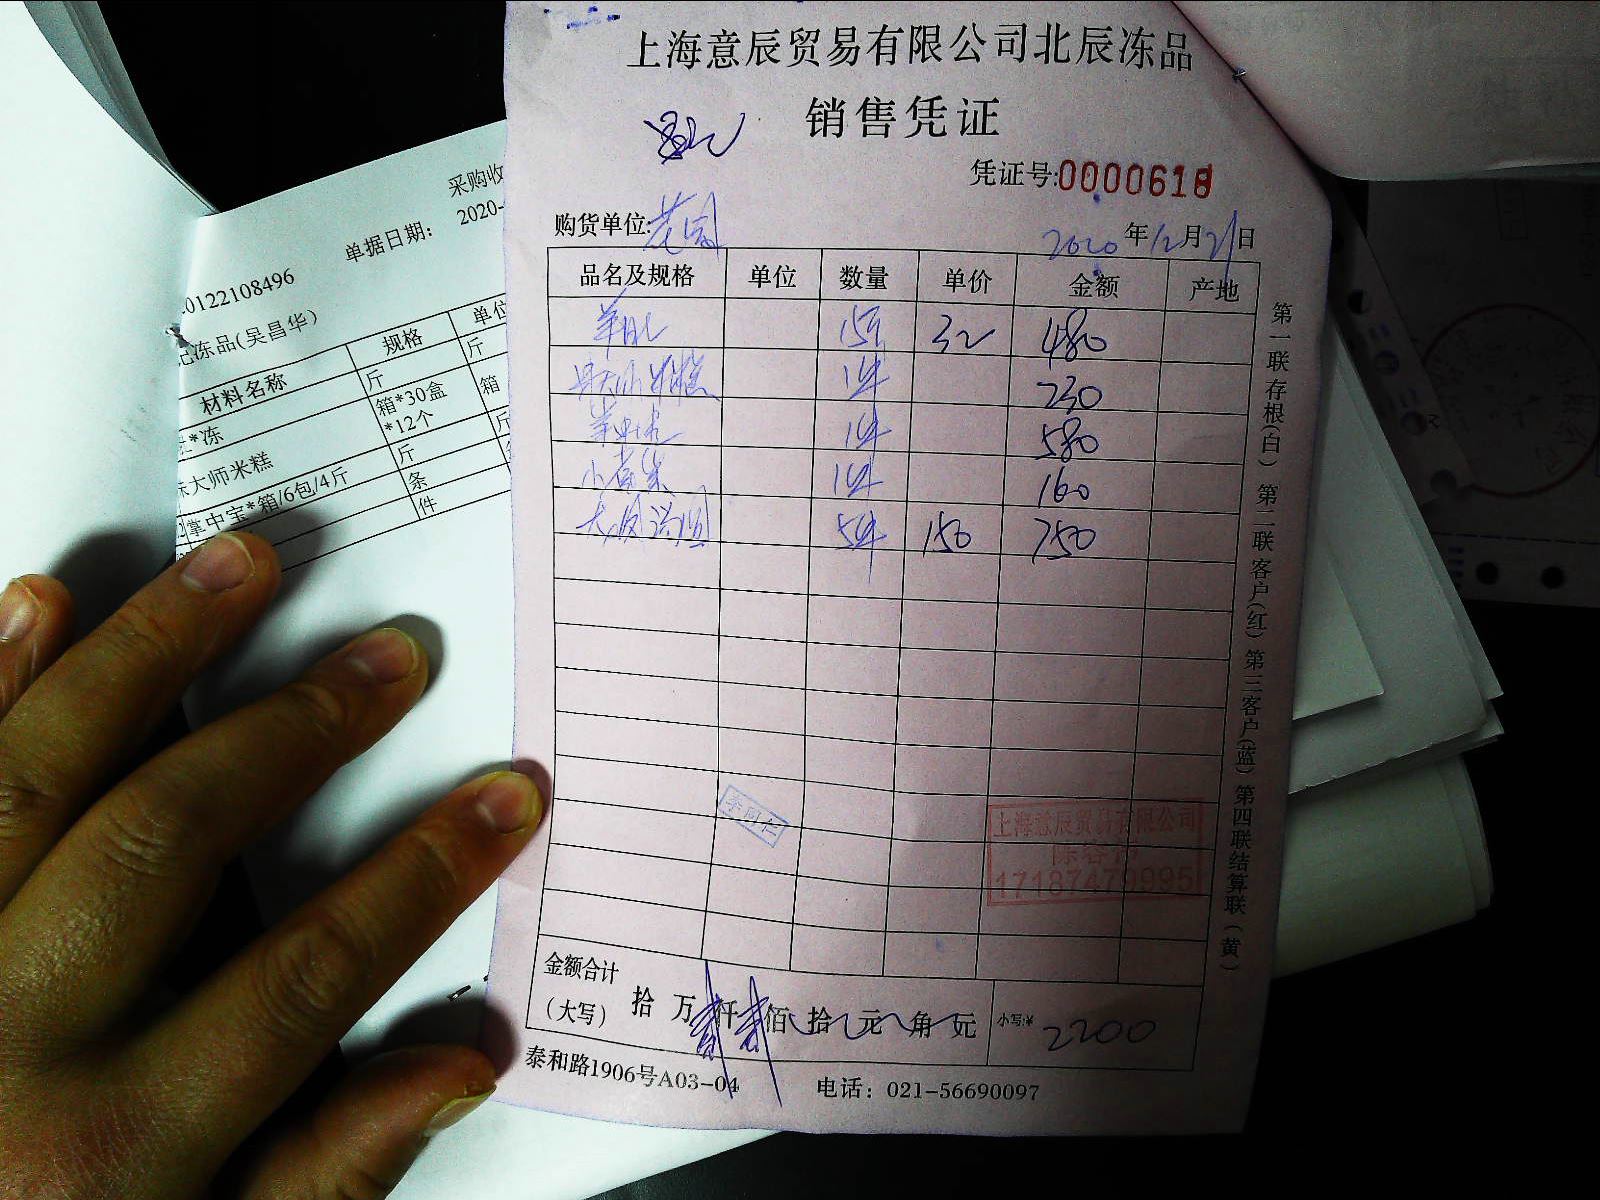 上海意辰贸易有限公司北辰冻品
销售凭证
凭证号:0000618
购货单位:花园
2020年12月21日
品名及规格 单位 数量 单价 金额 产地
15斤 32 480
大师米糕 1件 230
1件 580
1件 160
5件 150 750
金额合计
(大写) 拾 万 贰仟 贰佰 拾 元 角 元 小写:¥ 2200
泰和路1906号A03-04 电话：021-56690097
第一联存根(白) 第二联客户(红) 第三客户(蓝) 第四联结算联(黄)
李同仁
上海意辰贸易有限公司
17187479995
采购收
单据日期： 2020-
0122108496
冻品(吴昌华)
材料名称 规格 单位
*冻 斤 斤
大师米糕 箱*30盒 箱
*12个
掌中宝*箱/6包/4斤 斤 斤
条
件